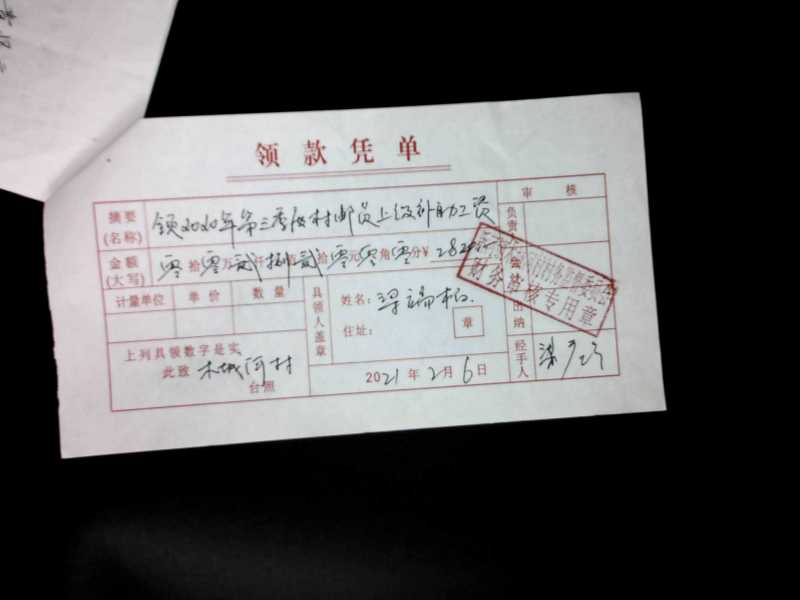 领款凭单
审 核
摘要(名称) 领2020年第三季度村邮员上级补助工资
负责
金额(大写) 零拾零万贰仟捌佰贰拾零元零角零分¥ 2820
计量单位 单价 数量
具领人盖章
姓名: 梁端
住址:
章
出纳
财务审核专用章
上列具领数字是实
此致 木城河村
台照
2021年2月6日
经手人 梁